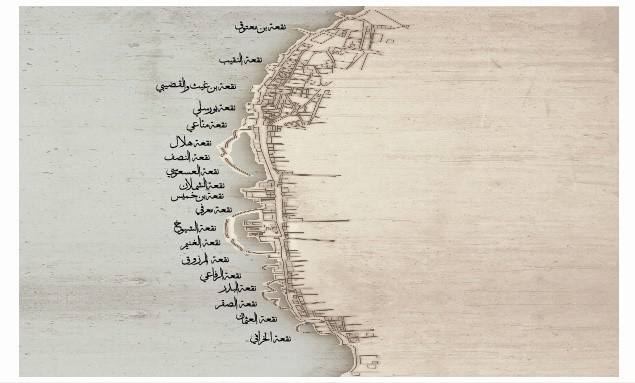 نقعة بن معتوق
نقعة النقيب
نقعة بن غيث والقضيبي
نقعة بورسلي
نقعة مناعي
نقعة هلال
نقعة النصف
نقعة العسعوسي
نقعة الشملان
نقعة بن خميس
نقعة معرفي
نقعة الشيوخ
نقعة الغنيم
نقعة المرزوق
نقعة الرفاعي
نقعة البدر
نقعة الصقر
نقعة العثمان
نقعة الخرافي